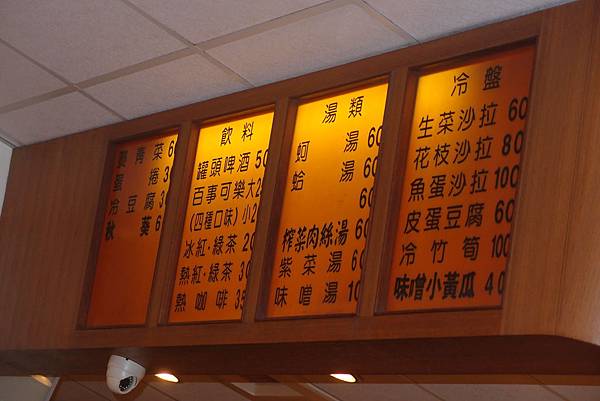 青菜 6
蛋捲 3
冷豆腐 3
秋葵 6
飲料
罐頭啤酒 50
百事可樂大 2
(四種口味)小 2
冰紅·綠茶 20
熱紅·綠茶 30
熱咖啡 35
湯類
蚵湯 60
蛤湯 60
60
榨菜肉絲湯 60
紫菜湯 60
味噌湯 10
冷盤
生菜沙拉 60
花枝沙拉 80
魚蛋沙拉 100
皮蛋豆腐 60
冷竹筍 100
味噌小黃瓜 40